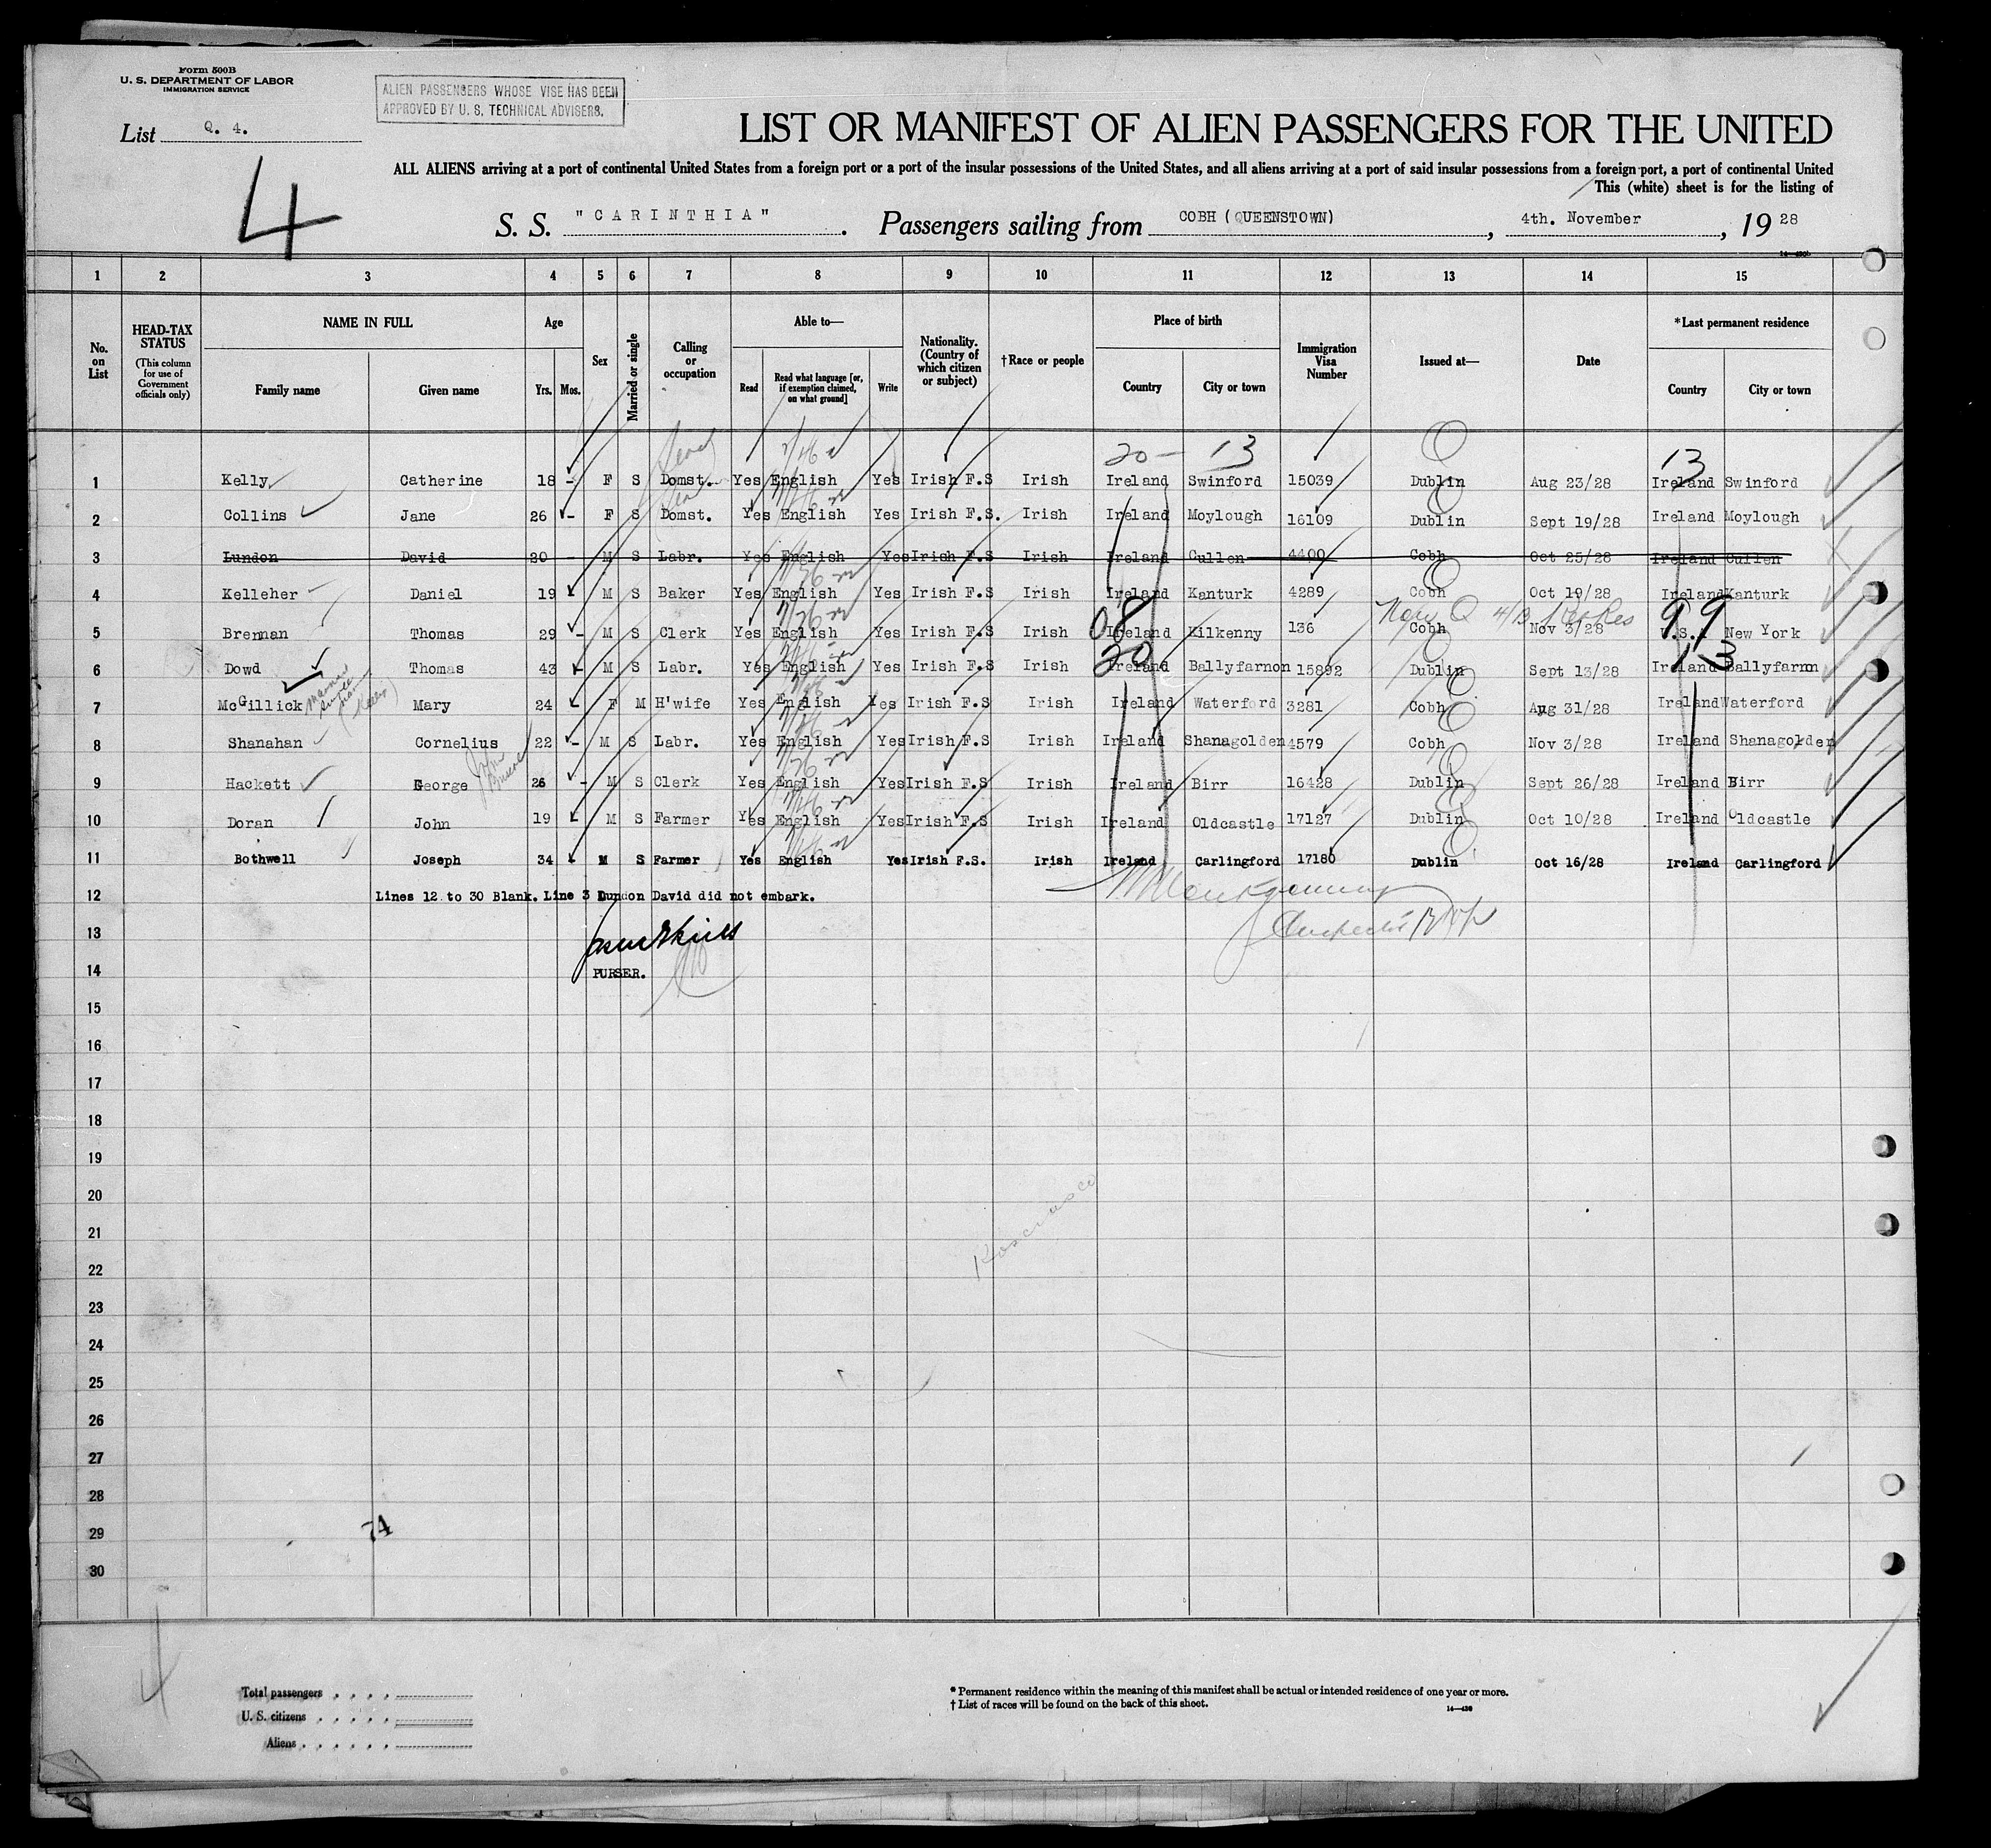 Form 500B
U. S. DEPARTMENT OF LABOR
IMMIGRATION SERVICE
ALIEN PASSENGERS WHOSE VISE HAS BEEN
APPROVED BY U. S. TECHNICAL ADVISERS.
List Q. 4.
4
LIST OR MANIFEST OF ALIEN PASSENGERS FOR THE UNITED
ALL ALIENS arriving at a port of continental United States from a foreign port or a port of the insular possessions of the United States, and all aliens arriving at a port of said insular possessions from a foreign port, a port of continental United
This (white) sheet is for the listing of
S. S. "CARINTHIA". Passengers sailing from COBH (QUEENSTOWN), 4th. November, 19 28
14—430b
1 2 3 4 5 6 7 8 9 10 11 12 13 14 15
No. on List
HEAD-TAX STATUS
(This column for use of Government officials only)
NAME IN FULL
Family name Given name
Age
Yrs. Mos.
Sex
Married or single
Calling or occupation
Able to—
Read Read what language [or, if exemption claimed, on what ground] Write
Nationality. (Country of which citizen or subject)
†Race or people
Place of birth
Country City or town
Immigration Visa Number
Issued at—
Date
*Last permanent residence
Country City or town
20— 13 13
1 Kelly Catherine 18 - F S Domst. Yes English Yes Irish F.S Irish Ireland Swinford 15039 Dublin Aug 23/28 Ireland Swinford
2 Collins Jane 26 - F S Domst. Yes English Yes Irish F.S. Irish Ireland Moylough 16109 Dublin Sept 19/28 Ireland Moylough
3 Lundon David 20 - M S Labr. Yes English Yes Irish F.S Irish Ireland Cullen 4400 Cobh Oct 25/28 Ireland Cullen
4 Kelleher Daniel 19 M S Baker Yes English Yes Irish F.S Irish Ireland Kanturk 4289 Cobh Oct 19/28 Ireland Kanturk
08 99
5 Brennan Thomas 29 - M S Clerk Yes English Yes Irish F.S Irish Ireland Kilkenny 136 Cobh Nov 3/28 U.S.A New York
20 13
6 Dowd Thomas 43 - M S Labr. Yes English Yes Irish F.S Irish Ireland Ballyfarnon 15892 Dublin Sept 13/28 Ireland Ballyfarnon
7 McGillick Mary 24 - F M H'wife Yes English Yes Irish F.S Irish Ireland Waterford 3281 Cobh Aug 31/28 Ireland Waterford
8 Shanahan Cornelius 22 - M S Labr. Yes English Yes Irish F.S Irish Ireland Shanagolden 4579 Cobh Nov 3/28 Ireland Shanagolden
9 Hackett George 26 - M S Clerk Yes English Yes Irish F.S Irish Ireland Birr 16428 Dublin Sept 26/28 Ireland Birr
10 Doran John 19 - M S Farmer Yes English Yes Irish F.S Irish Ireland Oldcastle 17127 Dublin Oct 10/28 Ireland Oldcastle
11 Bothwell Joseph 34 M S Farmer Yes English Yes Irish F.S. Irish Ireland Carlingford 17180 Dublin Oct 16/28 Ireland Carlingford
12 Lines 12 to 30 Blank. Line 3 Lundon David did not embark.
13
14 PURSER.
15
16
17
18
19
20
21
22
23
24
25
26
27
28
29
74
30
4
Total passengers
U. S. citizens
Aliens
* Permanent residence within the meaning of this manifest shall be actual or intended residence of one year or more.
† List of races will be found on the back of this sheet.
14—430